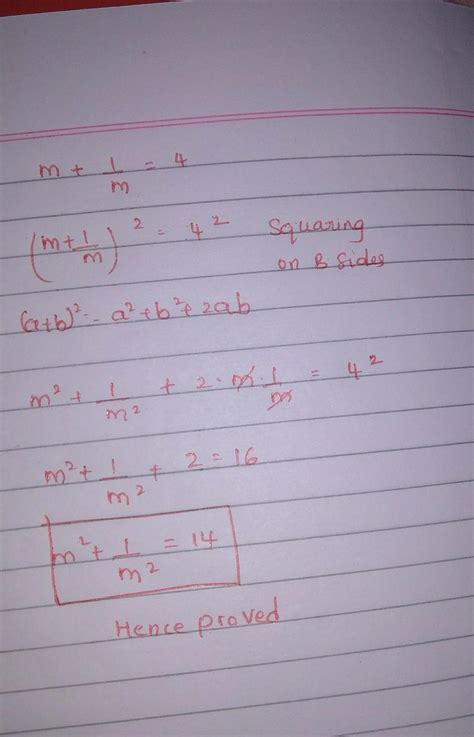 m + 1/m = 4
(m+1/m)² = 4² Squaring
on B sides
(a+b)² = a²+b²+2ab
m² + 1/m² + 2 · m · 1/m = 4²
m²+ 1/m² + 2 = 16
m²+ 1/m² = 14
Hence proved